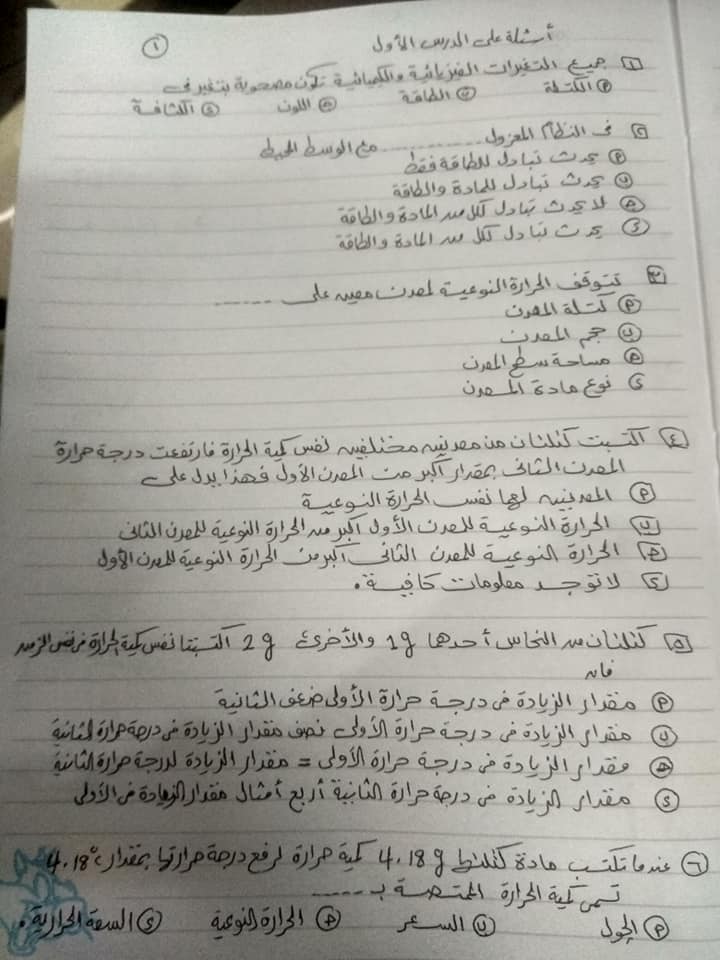 أسئلة على الدرس الأول
١
١ جميع التغيرات الفيزيائية والكيميائية تكون مصحوبة بتغير فى
أ الكتلة ب الطاقة ج اللون د الكثافة
٢ فى النظام المعزول ............ مع الوسط المحيط
أ يحدث تبادل للطاقة فقط
ب يحدث تبادل للمادة والطاقة
ج لا يحدث تبادل لكل من المادة والطاقة
د يحدث تبادل لكل من المادة والطاقة
٣ تتوقف الحرارة النوعية لمعدن معين على ......
أ كتلة المعدن
ب حجم المعدن
ج مساحة سطح المعدن
د نوع مادة المعدن
٤ اكتسبت كتلتان من معدنين مختلفين نفس كمية الحرارة فارتفعت درجة حرارة
المعدن الثانى بمقدار أكبر من المعدن الأول فهذا يدل على
أ المعدنين لهما نفس الحرارة النوعية
ب الحرارة النوعية للمعدن الأول اكبر من الحرارة النوعية للمعدن الثانى
ج الحرارة النوعية للمعدن الثانى اكبر من الحرارة النوعية للمعدن الأول
د لا توجد معلومات كافية .
٥ كتلتان من النحاس أحدهما 1g والأخرى 2g اكتسبتا نفس كمية الحرارة فى نفس الزمن
فإن
أ مقدار الزيادة فى درجة حرارة الأولى ضعف الثانية
ب مقدار الزيادة فى درجة حرارة الأولى نصف مقدار الزيادة فى درجة حرارة الثانية
ج مقدار الزيادة فى درجة حرارة الأولى = مقدار الزيادة لدرجة حرارة الثانية
د مقدار الزيادة فى درجة حرارة الثانية أربع أمثال مقدار الزيادة فى الأولى
٦ عندما تكتسب مادة كتلتها 4.18g كمية حرارة لرفع درجة حرارتها بمقدار 4.18°c
تسمى كمية الحرارة الممتصة بـ ......
أ الچول ب السعر ج الحرارة النوعية د السعة الحرارية .